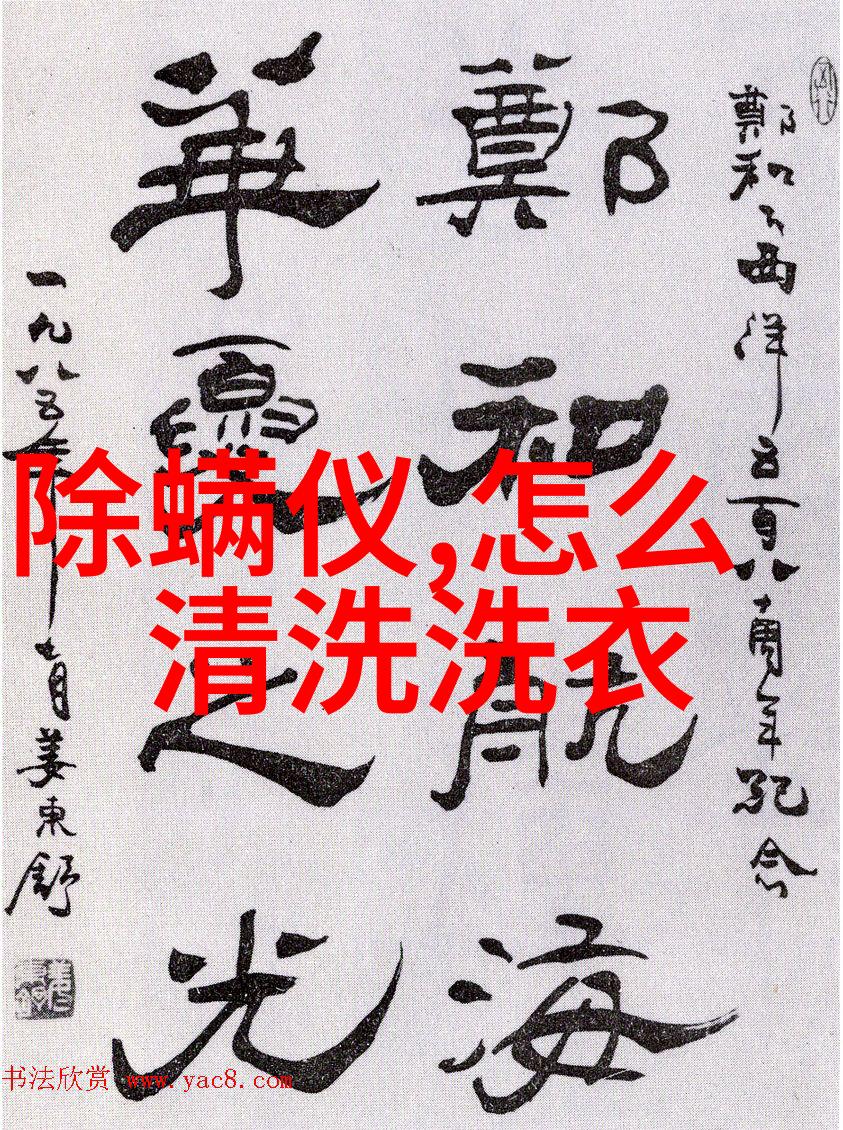 鄭和下西洋五百八十周年紀念
鄭和航海
華夏之光
一九八五年十月姜東舒
除螨仪,怎么
清洗洗衣
书法欣赏 www.yac8.com